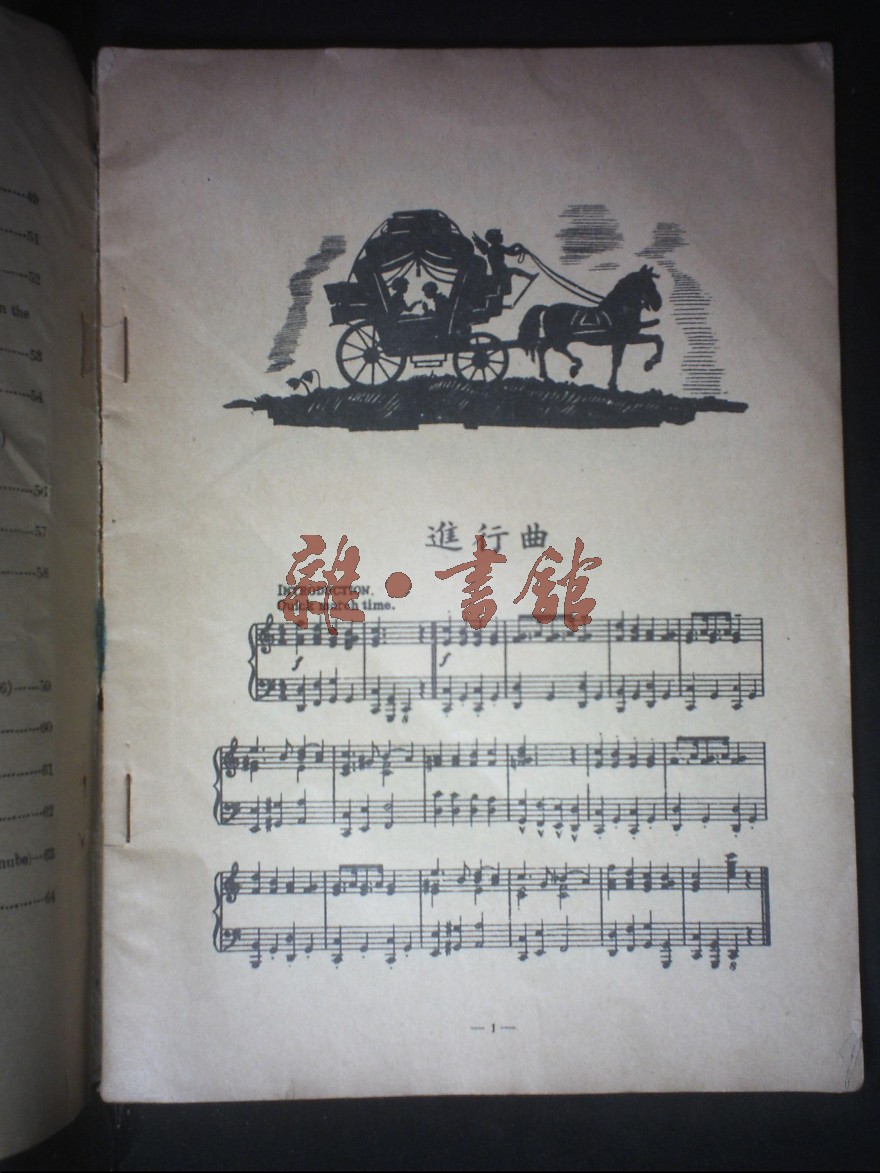 49
51
52
n the
53
54
)
56
57
58
6)
59
60
61
62
nube)
63
64
進行曲
雜·書館
INTRODUCTION.
Quick march time.
f
f
8
8
— 1 —